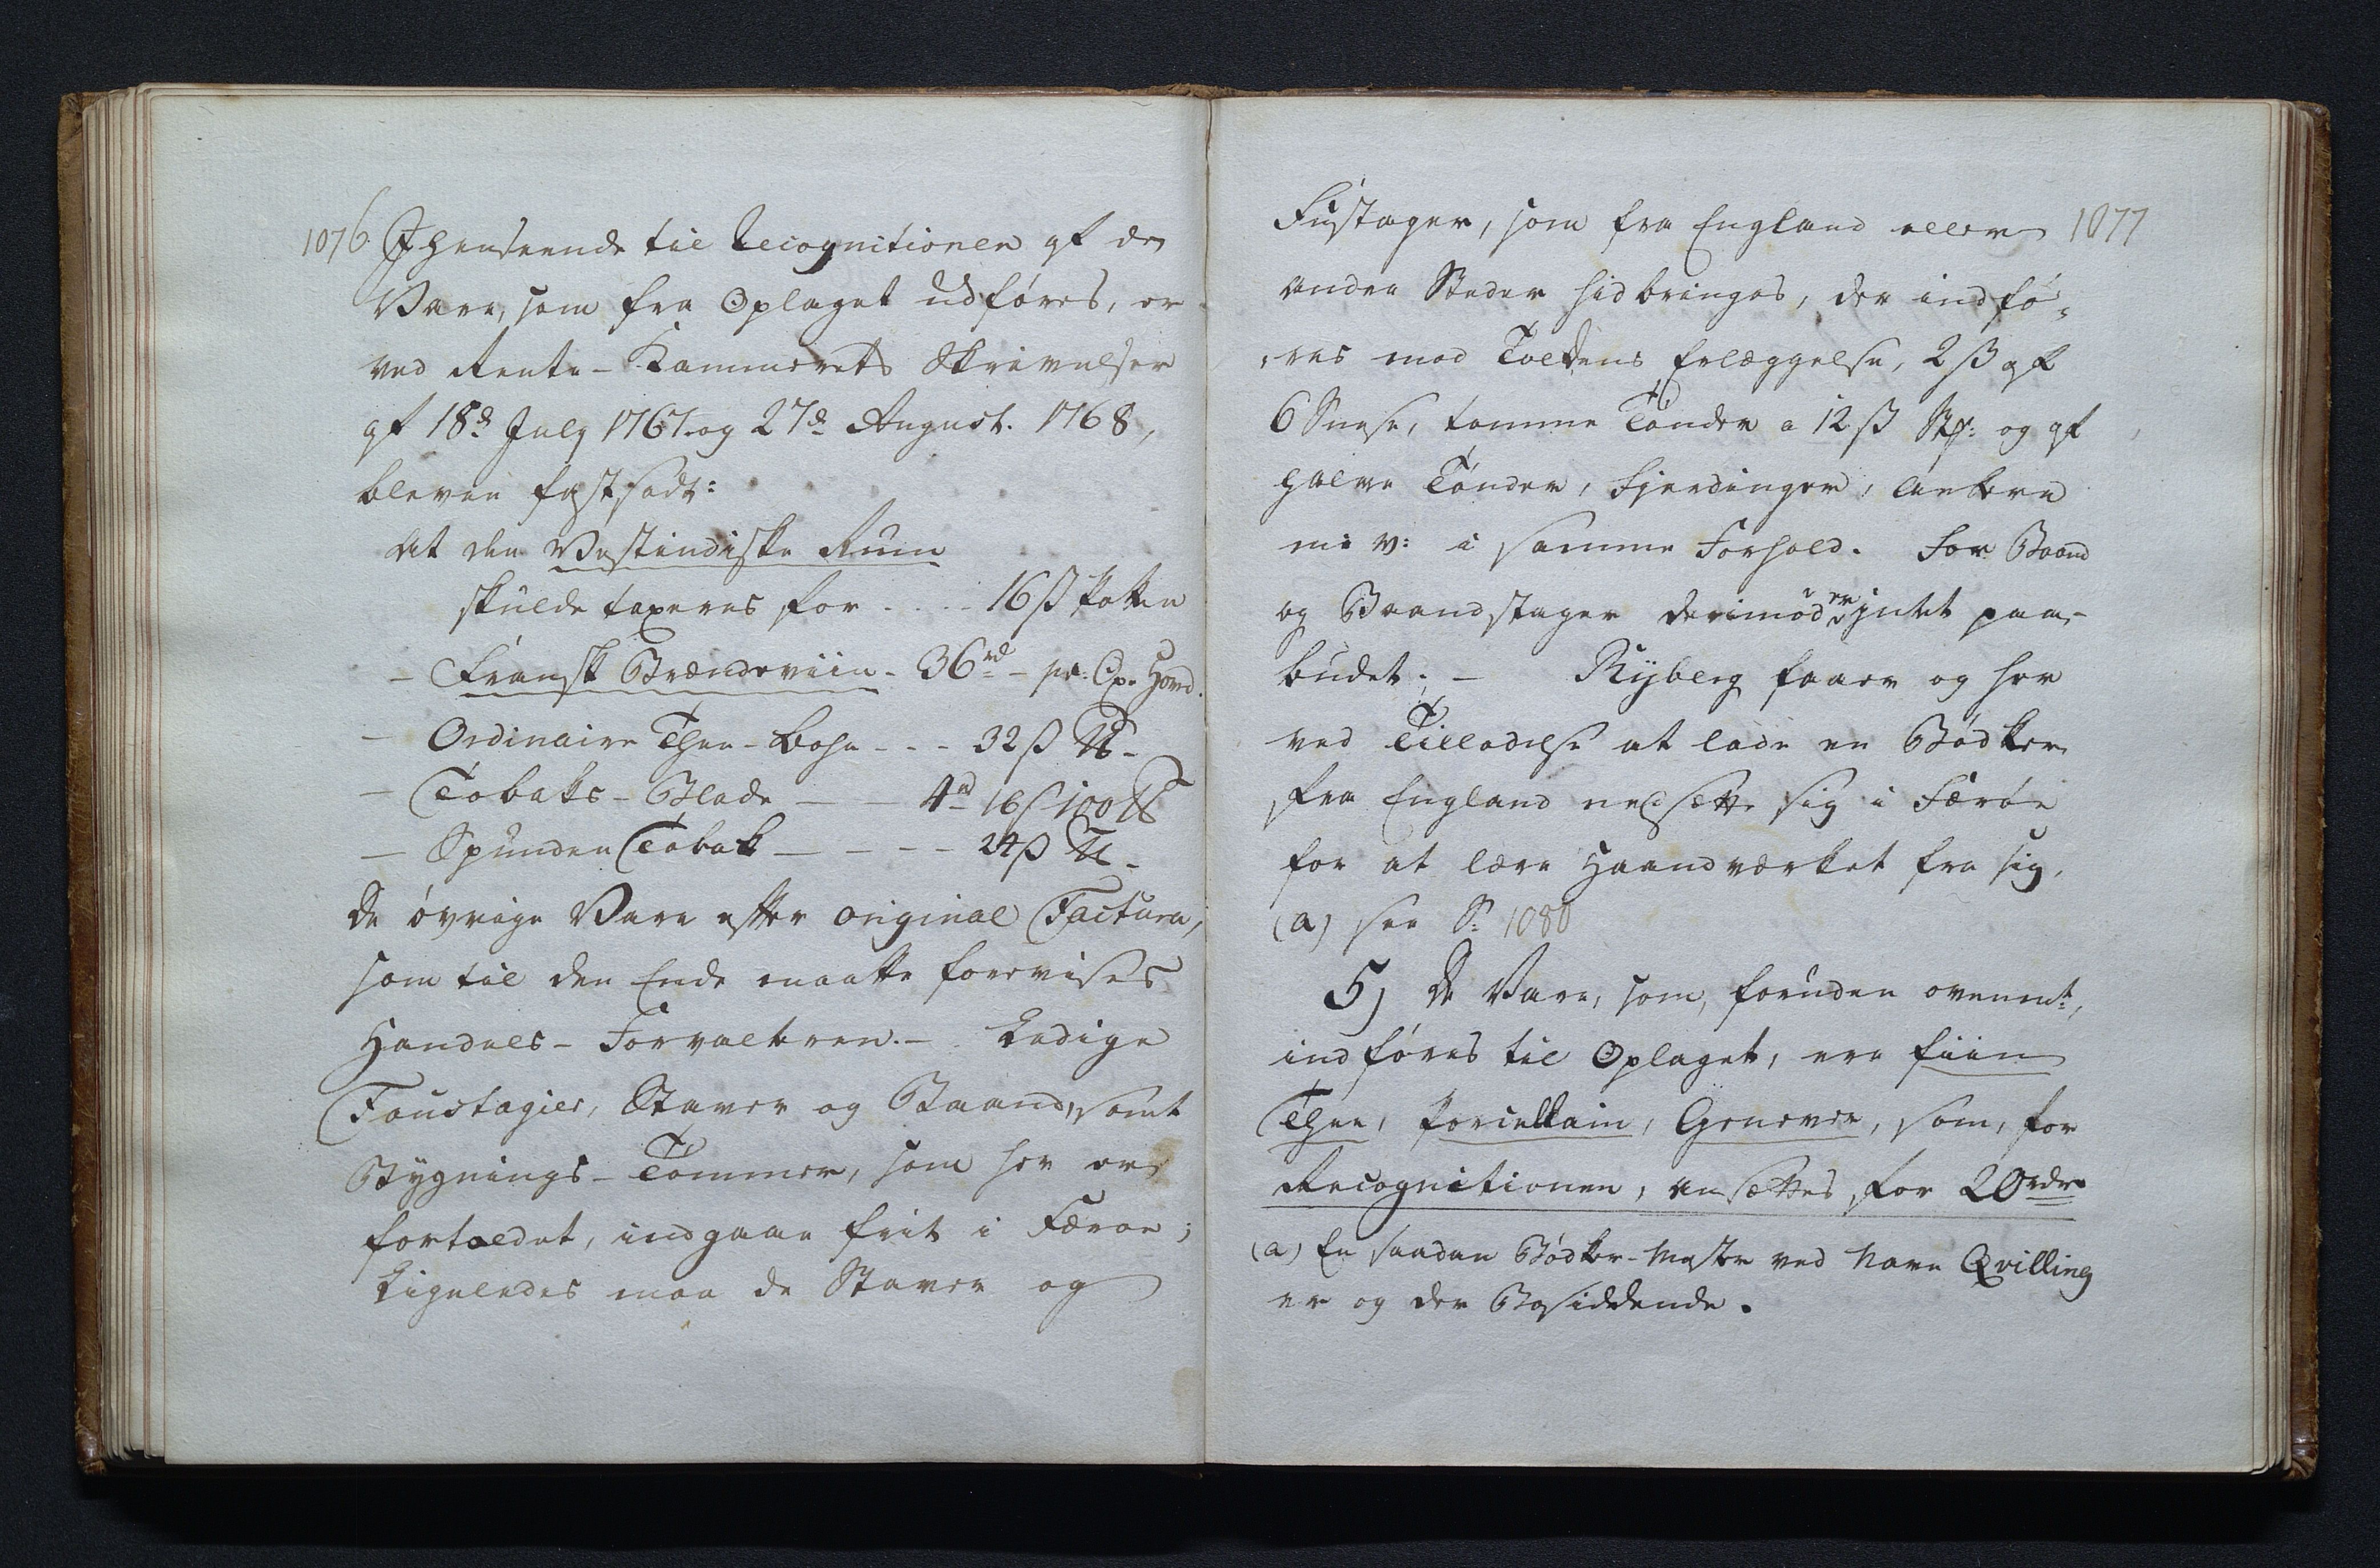 1076. I henseende til Recognitionen af de
Vare, som fra Oplaget udføres, er
ved Rente-Kammerets Skrivelser
af 18d July 1767. og 27d August. 1768,
bleven fastsadt:
At den Vestindiske Rum
skulde taxeres for .... 16 ß Potten
- Fransk Brændeviin - 36 rd - pr. Ox-Hovd.
- Ordinaire Thee-bohe - - - 32 ß ℔ -
- Tobaks-Blade - - 4 rd 16 ß 100 ℔
- Spunden Tobak - - - - 24 ß ℔ -
De øvrige Vare efter original Factura,
som til den Ende maatte forevises
Handels-Forvalteren. - Ledige
Foustagier, Staver og Baand, samt
Bygnings-Tømmer, som her er
fortoldet, indgaae friit i Færøe;
Ligeledes maa de Staver og
Fustager, som fra England eller 1077
andre Steder hidbringes, der indfø-
res mod Toldens Erlæggelse, 2 ß af
6 Snese, tomme Tønder a 12 ß Stk: og af
halve Tønder, Fjerdinger, Ankere
m: v: i samme Forhold. For Baand
og Baandstager derimod er intet paa-
budet. - Ryberg faaer og her
ved Tilladelse at lade en Bødker
fra England nedsætte sig i Færøe
for at lære Haandværket fra sig.
(a) see S: 1080
5) De Vare, som, foruden ovennt:,
indføres til Oplaget, ere fiin
Thee, Porcellain, Genever, som, for
Recognitionen, ansættes for 20 rdr
(a) En saadan Bødker-Mester ved Navn Qvilling
er og der Bosiddende.